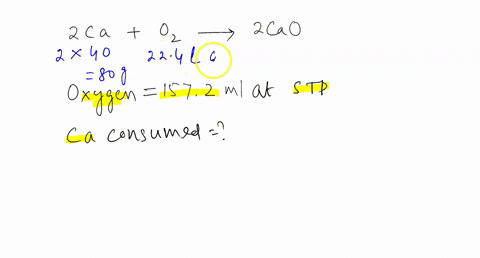 2Ca + O₂ ⟶ 2CaO
2 × 40 22.4 L
= 80g
Oxygen = 157.2 ml at STP
Ca consumed = ?